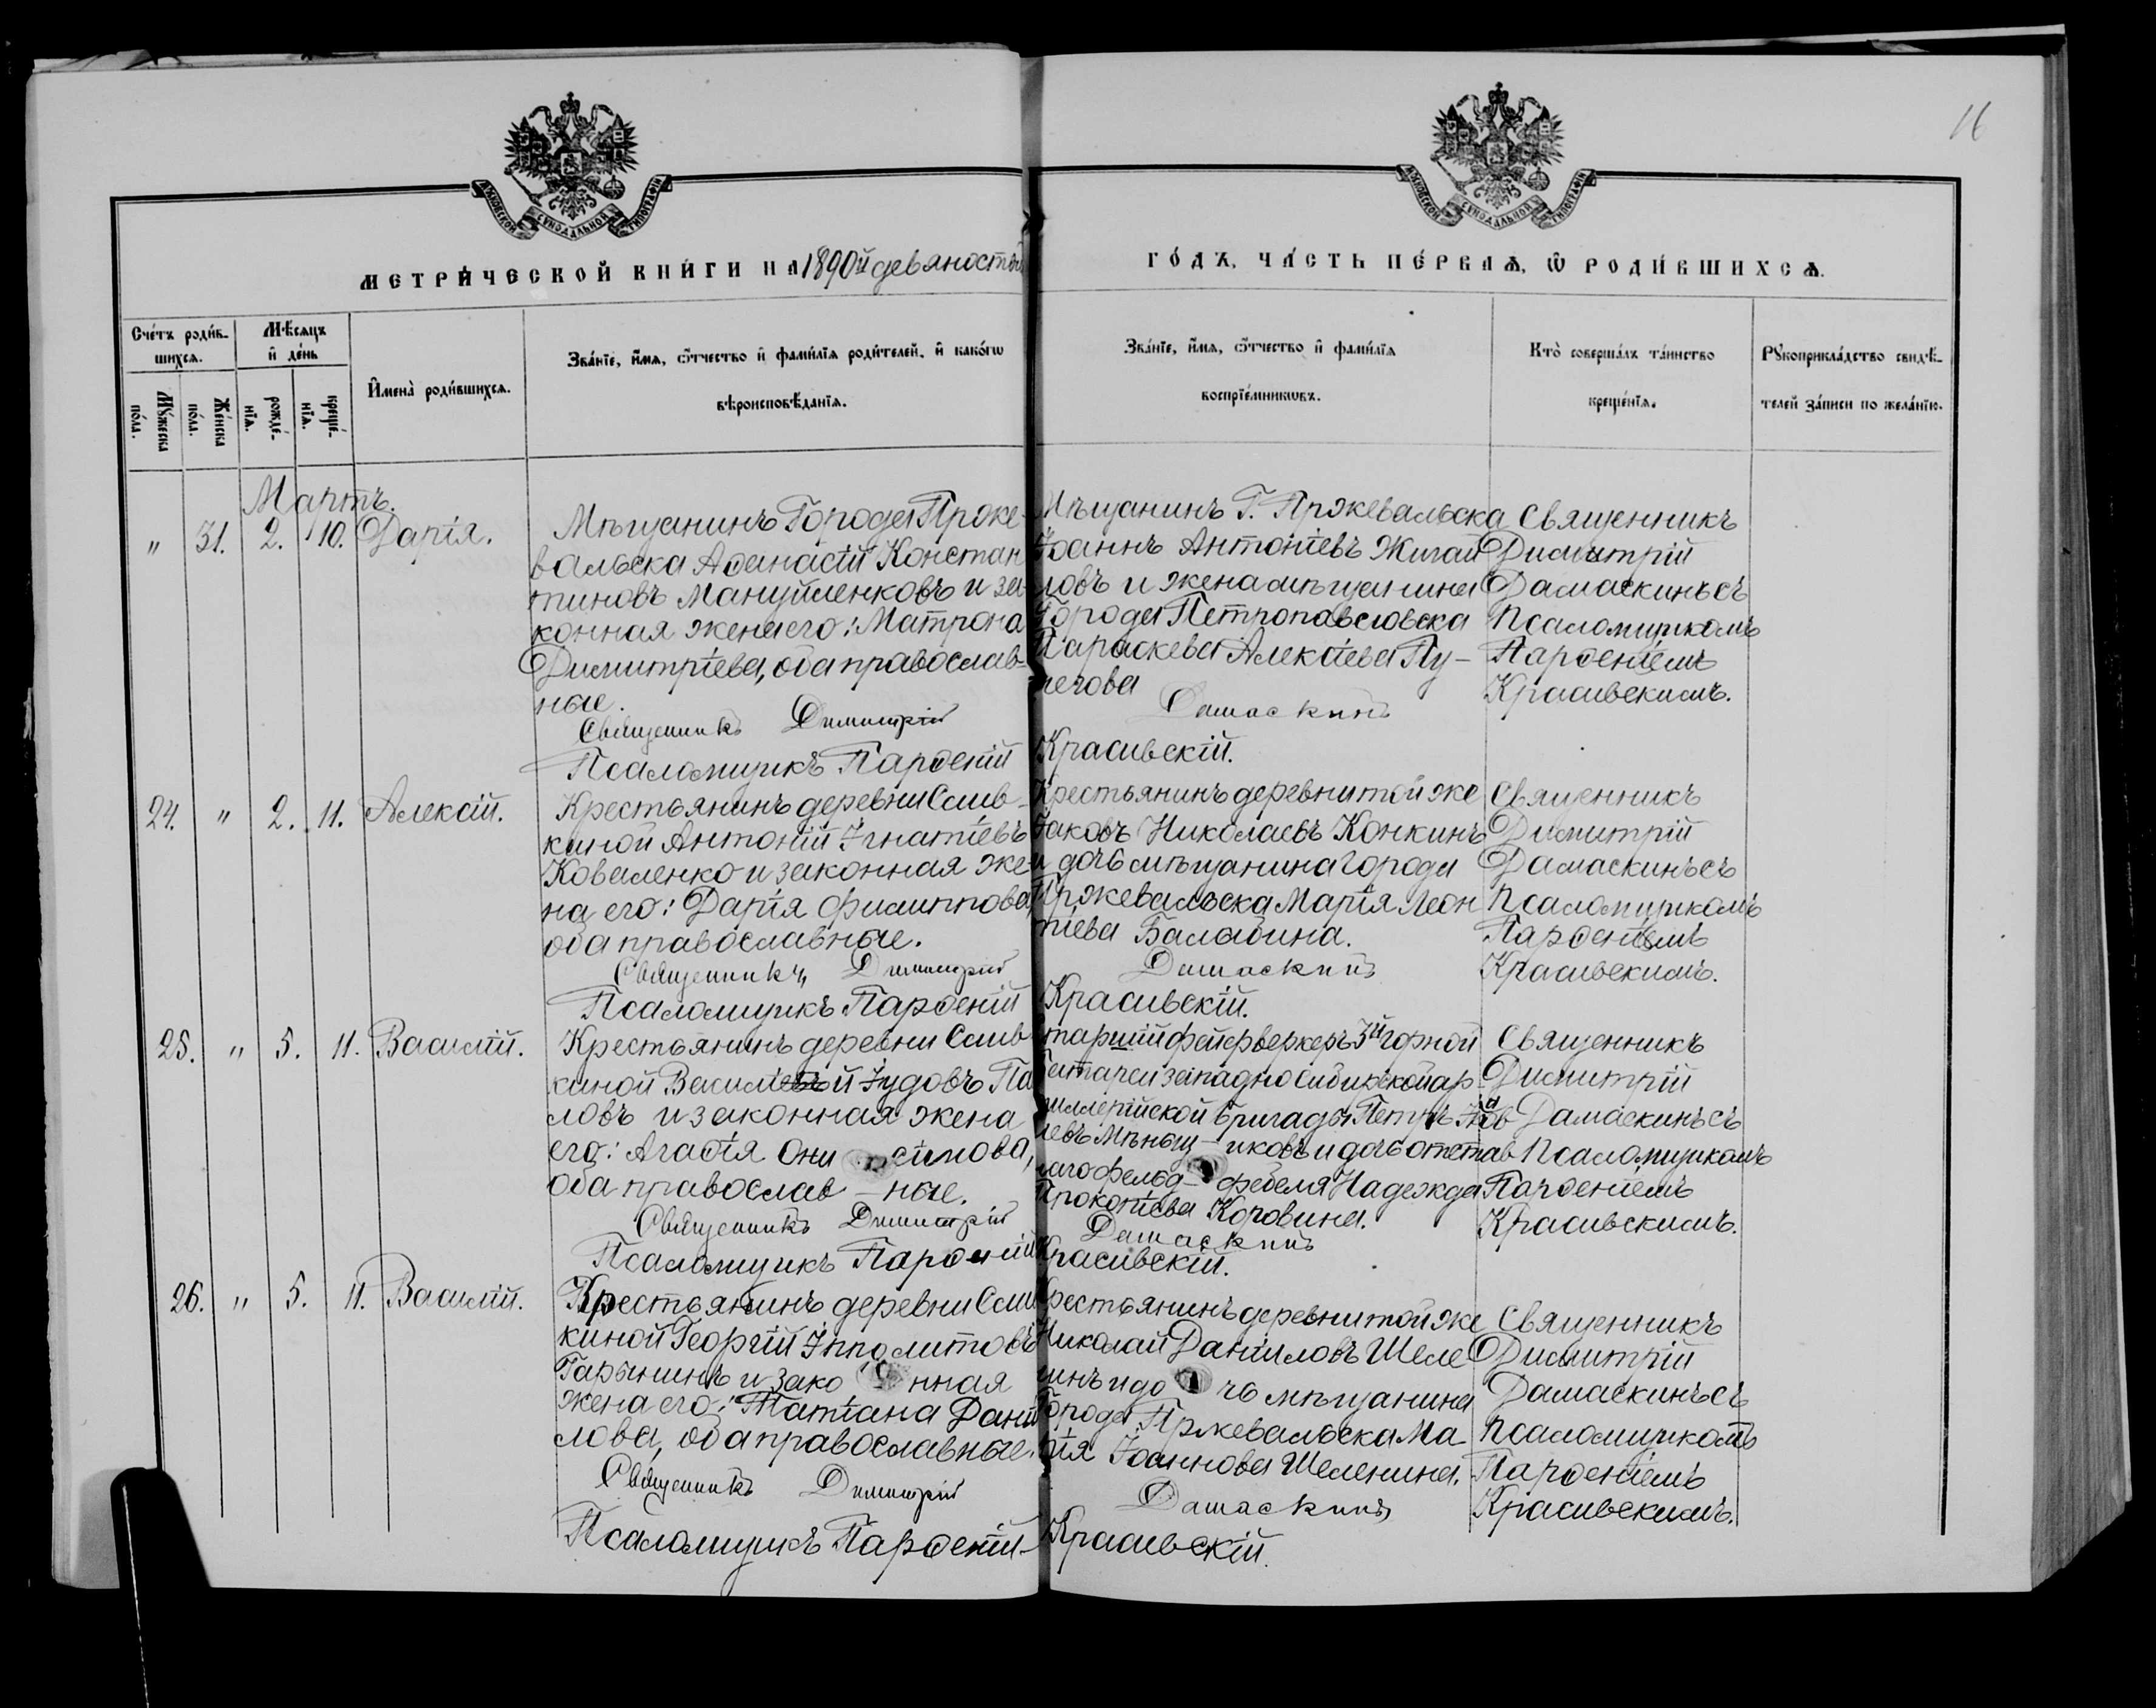 16
МОСКОВСКОЙ СѴНОДАЛЬНОЙ ТИПОГРАФІИ
МОСКОВСКОЙ СѴНОДАЛЬНОЙ ТИПОГРАФІИ
МЕТРИ́ЧЕСКОЙ КНИ́ГИ НА 1890й девяностый
ГО́ДЪ, ЧА́СТЬ ПЕ́РВАѦ, Ѡ҆ РОДИ́ВШИХСѦ.
Сче́тъ роди́в-
шихсѧ.
Мꙋ́жеска по́ла.
Же́нска по́ла.
Мѣ́сѧцъ
и҆ де́нь
рожде́-
нїѧ.
креще́-
нїѧ.
И҆мена̀ роди́вшихсѧ.
Зва́нїе, и҆́мѧ, ѻ҆́тчество и҆ фами́лїѧ роди́телей, и҆ како́гѡ
вѣроисповѣ́данїѧ.
Зва́нїе, и҆́мѧ, ѻ҆́тчество и҆ фами́лїѧ
воспрїе́мникѡвъ.
Кто̀ соверша́лъ та́инство
креще́нїѧ.
Рꙋкоприкла́дство свидѣ́-
телей за́писи по жела́нїю.
Мартъ.
" 31. 2. 10. Дарія.
Мѣщанинъ Города Прже-
вальска Аѳанасій Констан
тиновъ Мануйленковъ и за-
конная жена его: Матрона
Димитріева, оба православ-
ные.
Мѣщанинъ Г. Пржевальска
Іоаннъ Антоніевъ Жигай
ловъ и жена мѣщанина
Города Петропавловска
Параскева Алексіева Пу-
гачова
Священникъ
Димитрій
Дамаскинъ съ
Псаломщикомъ
Парѳеніемъ
Красивскимъ.
Священникъ Димитрій Дамаскинъ
Псаломщикъ Парѳеній Красивскій.
24. " 2. 11. Алексій.
Крестьянинъ деревни Слив-
киной Антоній Игнатіевъ
Коваленко и законная же-
на его: Дарія Филиппова,
оба православные.
Крестьянинъ деревни той же
Іаковъ Николаевъ Конкинъ
и дочь мѣщанина города
Пржевальска Марія Леон
тіева Балабина.
Священникъ
Димитрій
Дамаскинъ съ
Псаломщикомъ
Парѳеніемъ
Красивскимъ.
Священникъ Димитрій Дамаскинъ
Псаломщикъ Парѳеній Красивскій.
25. " 5. 11. Василій.
Крестьянинъ деревни Слив
киной Василій Іудовъ Па
ловъ и законная жена
его: Агаѳія Они симова,
оба православ-ные.
таршій фейерверкеръ 3й горной
батареи западно Сибирской ар-
тиллерійской бригады Петръ
левъ Мѣньщ-иковъ и дочь отстав
наго фельд-фебеля Надежда
Прокопіева Коровина.
Священникъ
Димитрій
Дамаскинъ съ
Псаломщикомъ
Парѳеніемъ
Красивскимъ.
Священникъ Димитрій Дамаскинъ
Псаломщикъ Парѳеній Красивскій.
26. " 5. 11. Василій.
Крестьянинъ деревни Слив
киной Георгій Ипполитовъ
Гарынинъ и зако нная
жена его: Татіана Дани
лова, оба православные.
Крестьянинъ деревни той же
Николай Даніиловъ Шеле
нинъ и до чь мѣщанина
Города Пржевальска Ма
рія Іоаннова Шеленина.
Священникъ
Димитрій
Дамаскинъ съ
Псаломщикомъ
Парѳеніемъ
Красивскимъ.
Священникъ Димитрій Дамаскинъ
Псаломщикъ Парѳеній Красивскій.